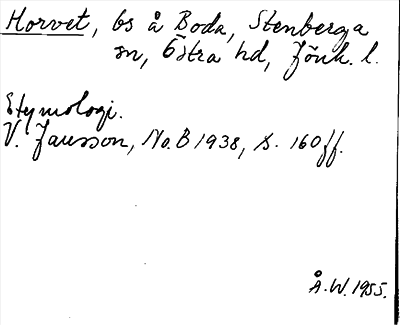 Horvet, bs å Boda, Stenberga
sn, Östra hd, Jönk. l.
Etymologi.
V. Jansson, No. B 1938, s. 160 ff.
Å.W. 1955.